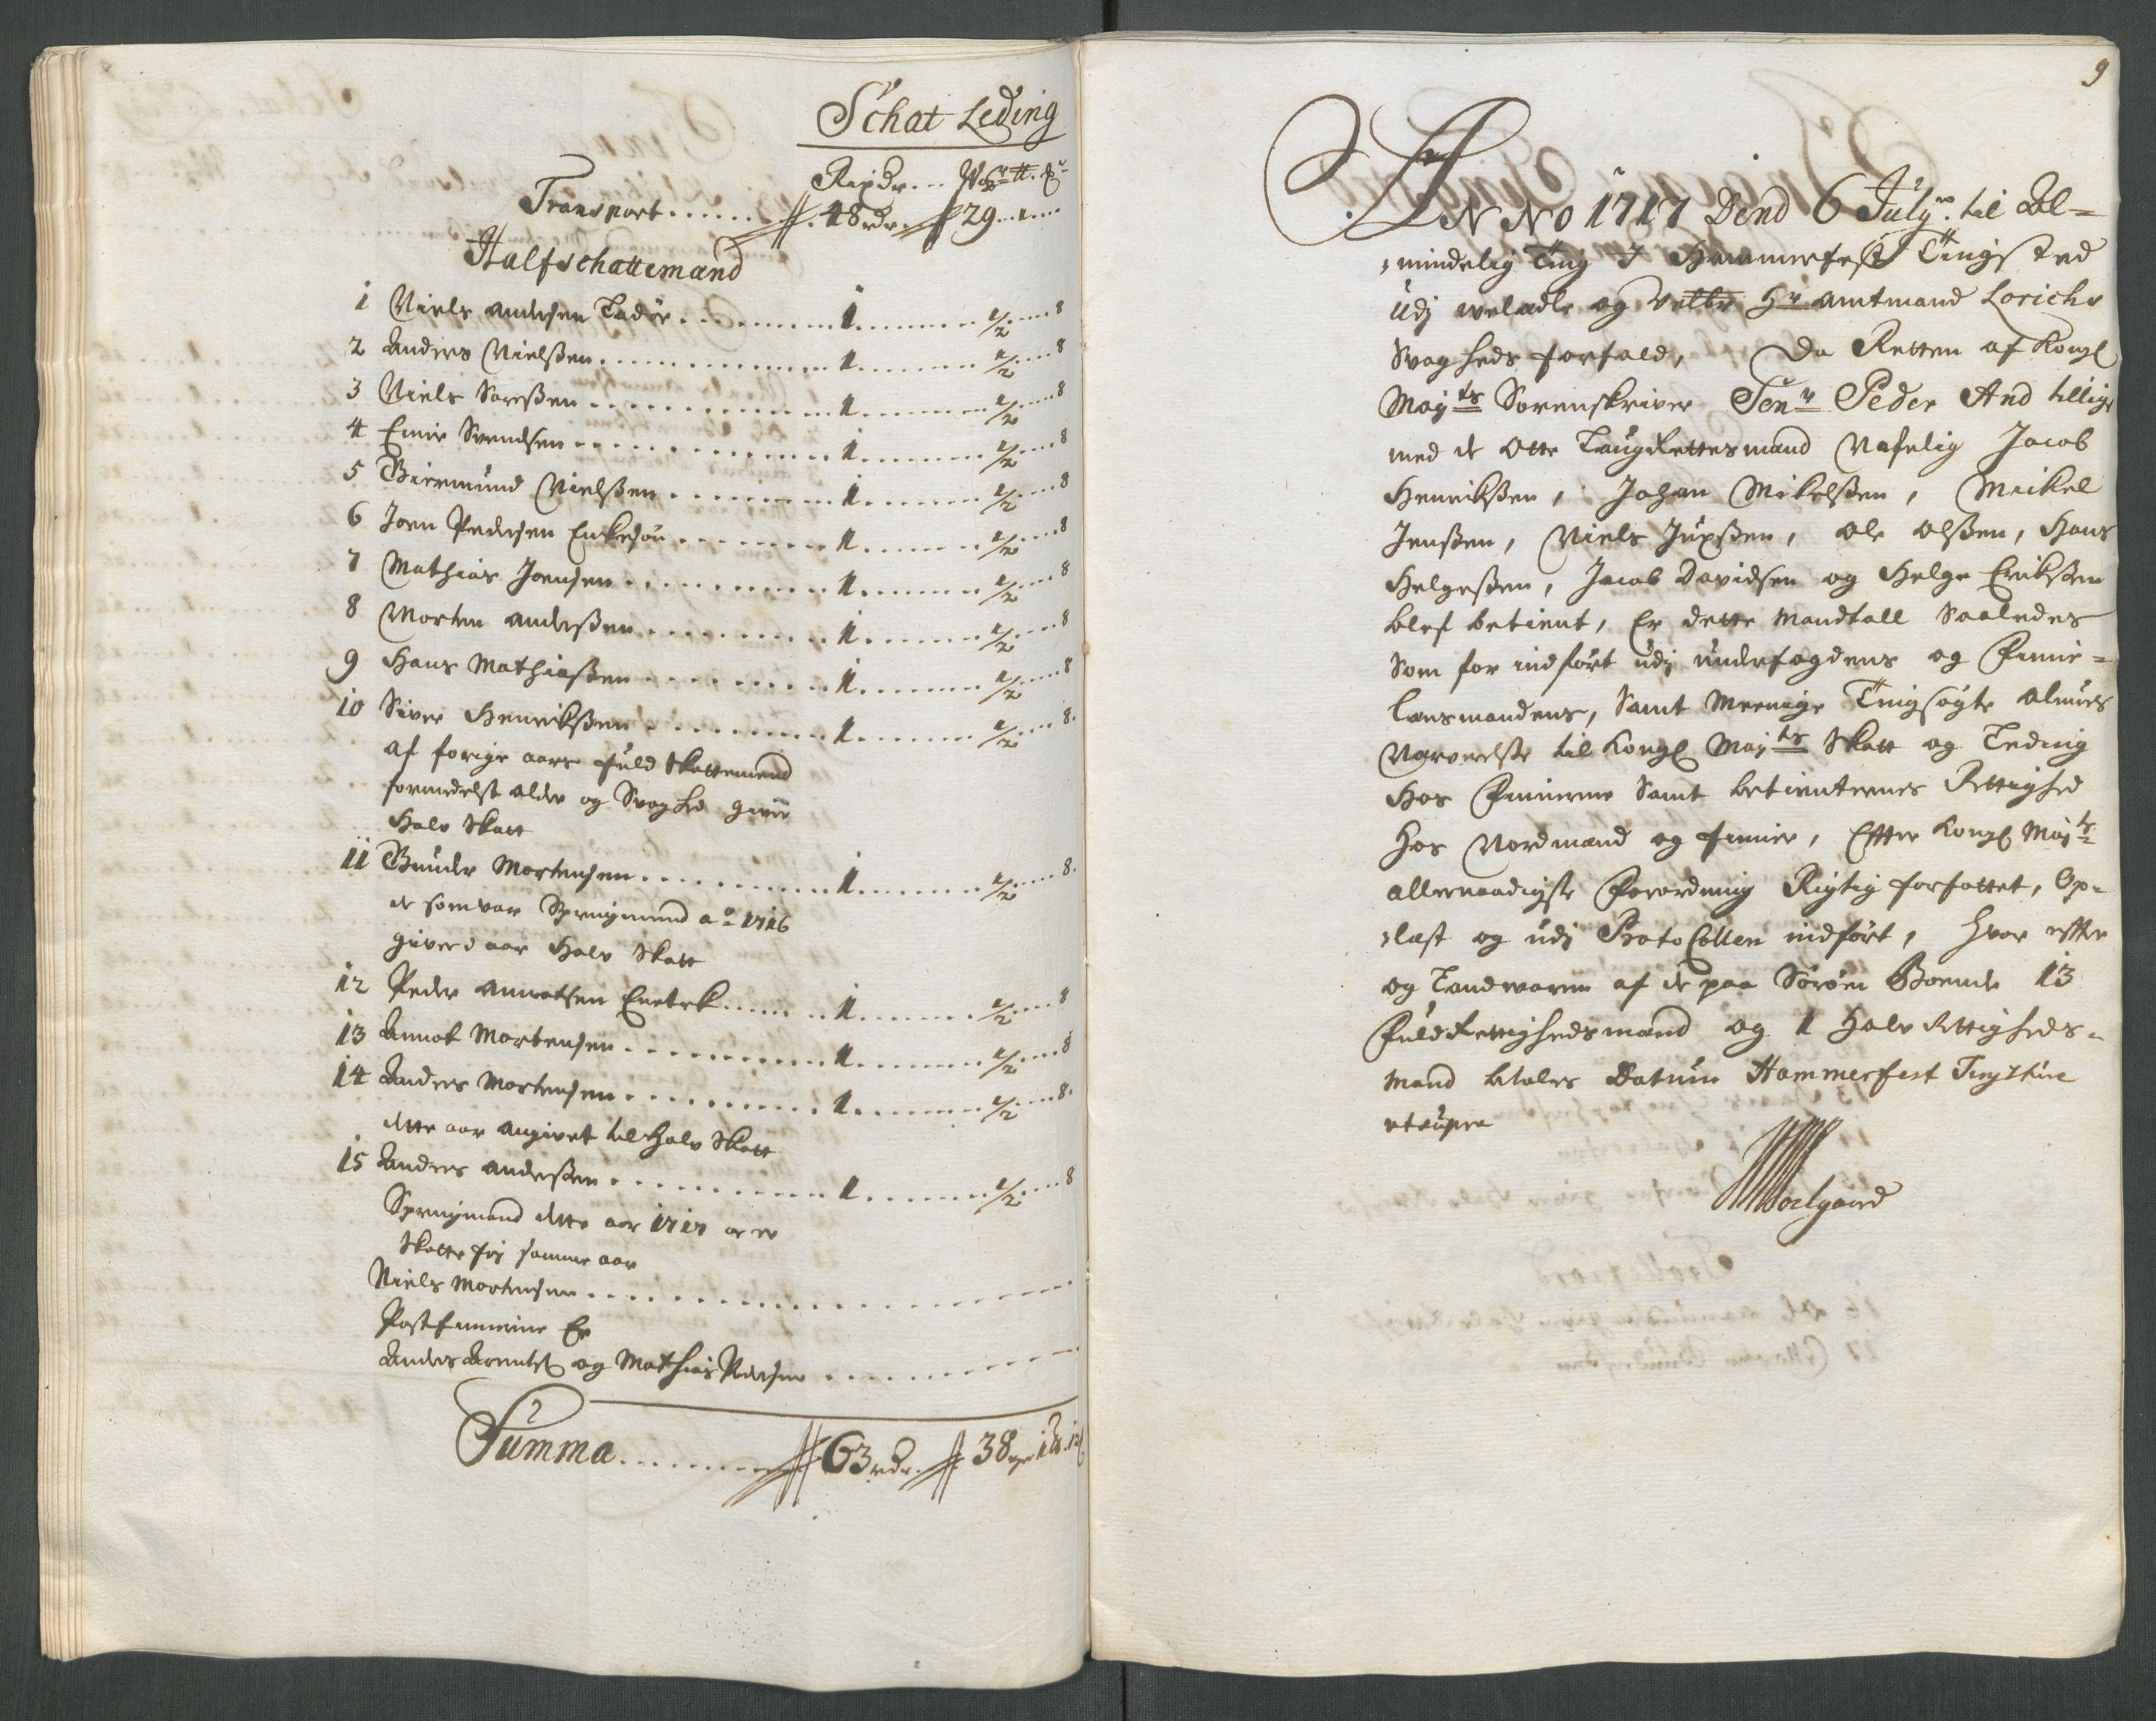 Schat Leding
Rixdr... Wog ℔.
Transport...... 48 rdr. 29......
Halfschattemænd
1 Niels Andersen ........ 1 ........ 1/2 .... 8
2 Anders Nielßen ........ 1 ........ 1/2 .... 8
3 Niels Sareßen ........ 1 ........ 1/2 .... 8
4 Svendsen ........ 1 ........ 1/2 .... 8
5 Giermund Nielßen ........ 1 ........ 1/2 .... 8
6 Joen Pedersen ........ 1 ........ 1/2 .... 8
7 Mathias Joensen ........ 1 ........ 1/2 .... 8
8 Morten Anderßen ........ 1 ........ 1/2 .... 8
9 Hans Mathiaßen ........ 1 ........ 1/2 .... 8
10 Siver Henrikßen ........ 1 ........ 1/2 .... 8.
af forige aars fuld Skattemend
formedelst alder og Svaghed giver
Halv Skatt
11 Gunder Mortensen ........ 1 ........ 1/2 .... 8.
de som var Springmænd ao 1716
giver i aar Halv Skatt
12 Peder Amnotsen ........ 1 ........ 1/2 .... 8
13 Amnot Mortensen ........ 1 ........ 1/2 .... 8
14 Anders Mortensen ........ 1 ........ 1/2 .... 8.
dette aar angivet til Halv Skatt
15 Anders Anderßen ........ 1 ........ 1/2 .... 8
Springmand dette aar 1717 og er
Skatte fri samme aar
Niels Mortensen ........
Postfinnerne Er
Anders Arentß og Mathias Pedersen ........
Summa........ 63 rdr. 38 1 12
9
ANNO 1717 Dend 6 July. til Al=
mindelig Ting I Hammerfest Tingsted
Udj weledle og Hr Amtmand Lorichs
Svagheds forfald, Da Retten af Kongl
Mayts Sorenskriver Senr Peder And tillige
med de Otte Laugrettesmænd Nafnlig Jacob
Henrikßen, Johan Mikelßen, Meikel
Jenßen, Niels Jupßen, Ole Olßen, Hans
Helgeßen, Jacob Davidsen og Helge Erikßen
blef betient, Er dette Mandtall Saaledes
Som for indført udj underfogdens og Finne=
lensmandens, Samt Meenige Tingsøgte Almues
Nærværelse til Kongl Mayts Skatt og Leding
Hos Finnerne Samt betienternes Rettighed
Hos Nordmænd og finner, Efter Kongl Mayts
allernaadigste Forordning Rigtig forfattet, Op=
læst og udj Protocollen indført, Hvor efter
og Landvaren af de paa Sørøen Boende 13
Fuld Rettighedsmænd og 1 Halv Rettigheds=
mand betales Datum Hammerfest Tingstue
ut supra
Wedelgaard